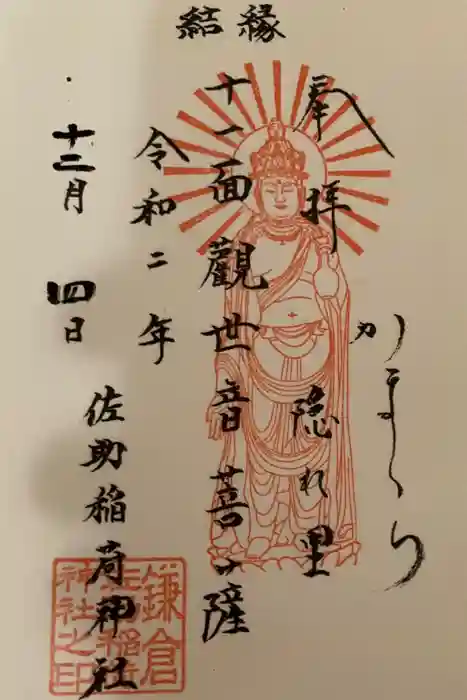 縁結
奉拝
かまくら
隠れ里
十一面觀世音菩薩
令和二年
十二月四日
佐助稲荷神社
鎌倉
佐助稲荷
神社之印